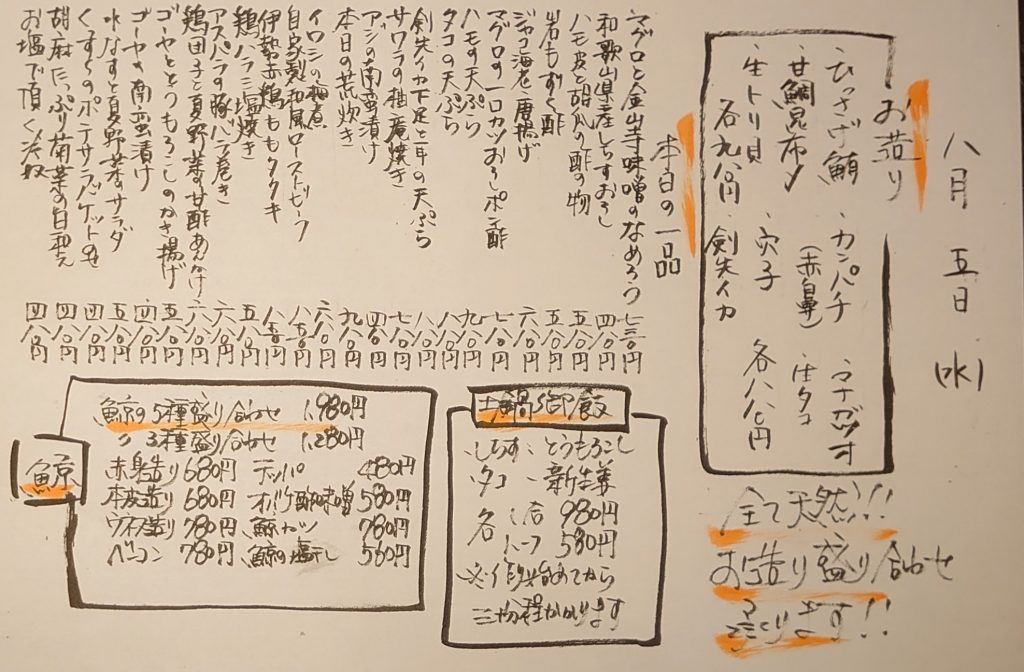 八月五日(水)
お造り
・ひっさげ鮪 ・カンパチ ・マナガツオ
・甘鯛昆布〆 (赤鼻) ・生タコ
・生トリ貝 ・穴子 各八八〇円
各九八〇円 ・剣先イカ
全て天然!!
お造り盛り合わせ
承ります!!
本日の一品
マグロと金山寺味噌のなめろう 七三〇円
和歌山県産しらすおろし 四八〇円
ハモ皮と胡瓜の酢の物 五八〇円
岩もずく酢 五八〇円
ジャコ海老の唐揚げ 六八〇円
マグロの一口カツおろしポン酢 七八〇円
ハモの天ぷら 九八〇円
タコの天ぷら 八八〇円
剣先イカ下足と の天ぷら 八八〇円
サワラの柚庵焼き 七八〇円
アジの南蛮漬け 四八〇円
本日の荒炊き 九八〇円
イワシの梅煮 六八〇円
自家製和風ローストビーフ 八五〇円
伊勢赤鶏ももタタキ 八五〇円
鶏ハラミ塩焼き 五八〇円
アスパラの豚バラ巻き 六八〇円
鶏団子と夏野菜の甘酢あんかけ 六八〇円
ゴーヤととうもろこしのかき揚げ 五八〇円
ゴーヤの南蛮漬け 四八〇円
水なすと夏野菜のサラダ 五八〇円
くすぐのポテサラバゲットのせ 四八〇円
胡麻たっぷり菊菜の白和え 四八〇円
お塩で頂く冷奴 四八〇円
土鍋御飯
・しらす ・とうもろこし
・タコ ・新生姜
各 一合 980円
ハーフ 580円
※作り始めてから
三十分程かかります
鯨
鯨の5種盛り合わせ 1,980円
〃 3種盛り合わせ 1,280円
赤身造り 680円 テッパ 480円
本皮造り 680円 オバケ酢味噌 580円
ウネス造り 780円 鯨カツ 780円
ベーコン 780円 鯨の塩干し 560円